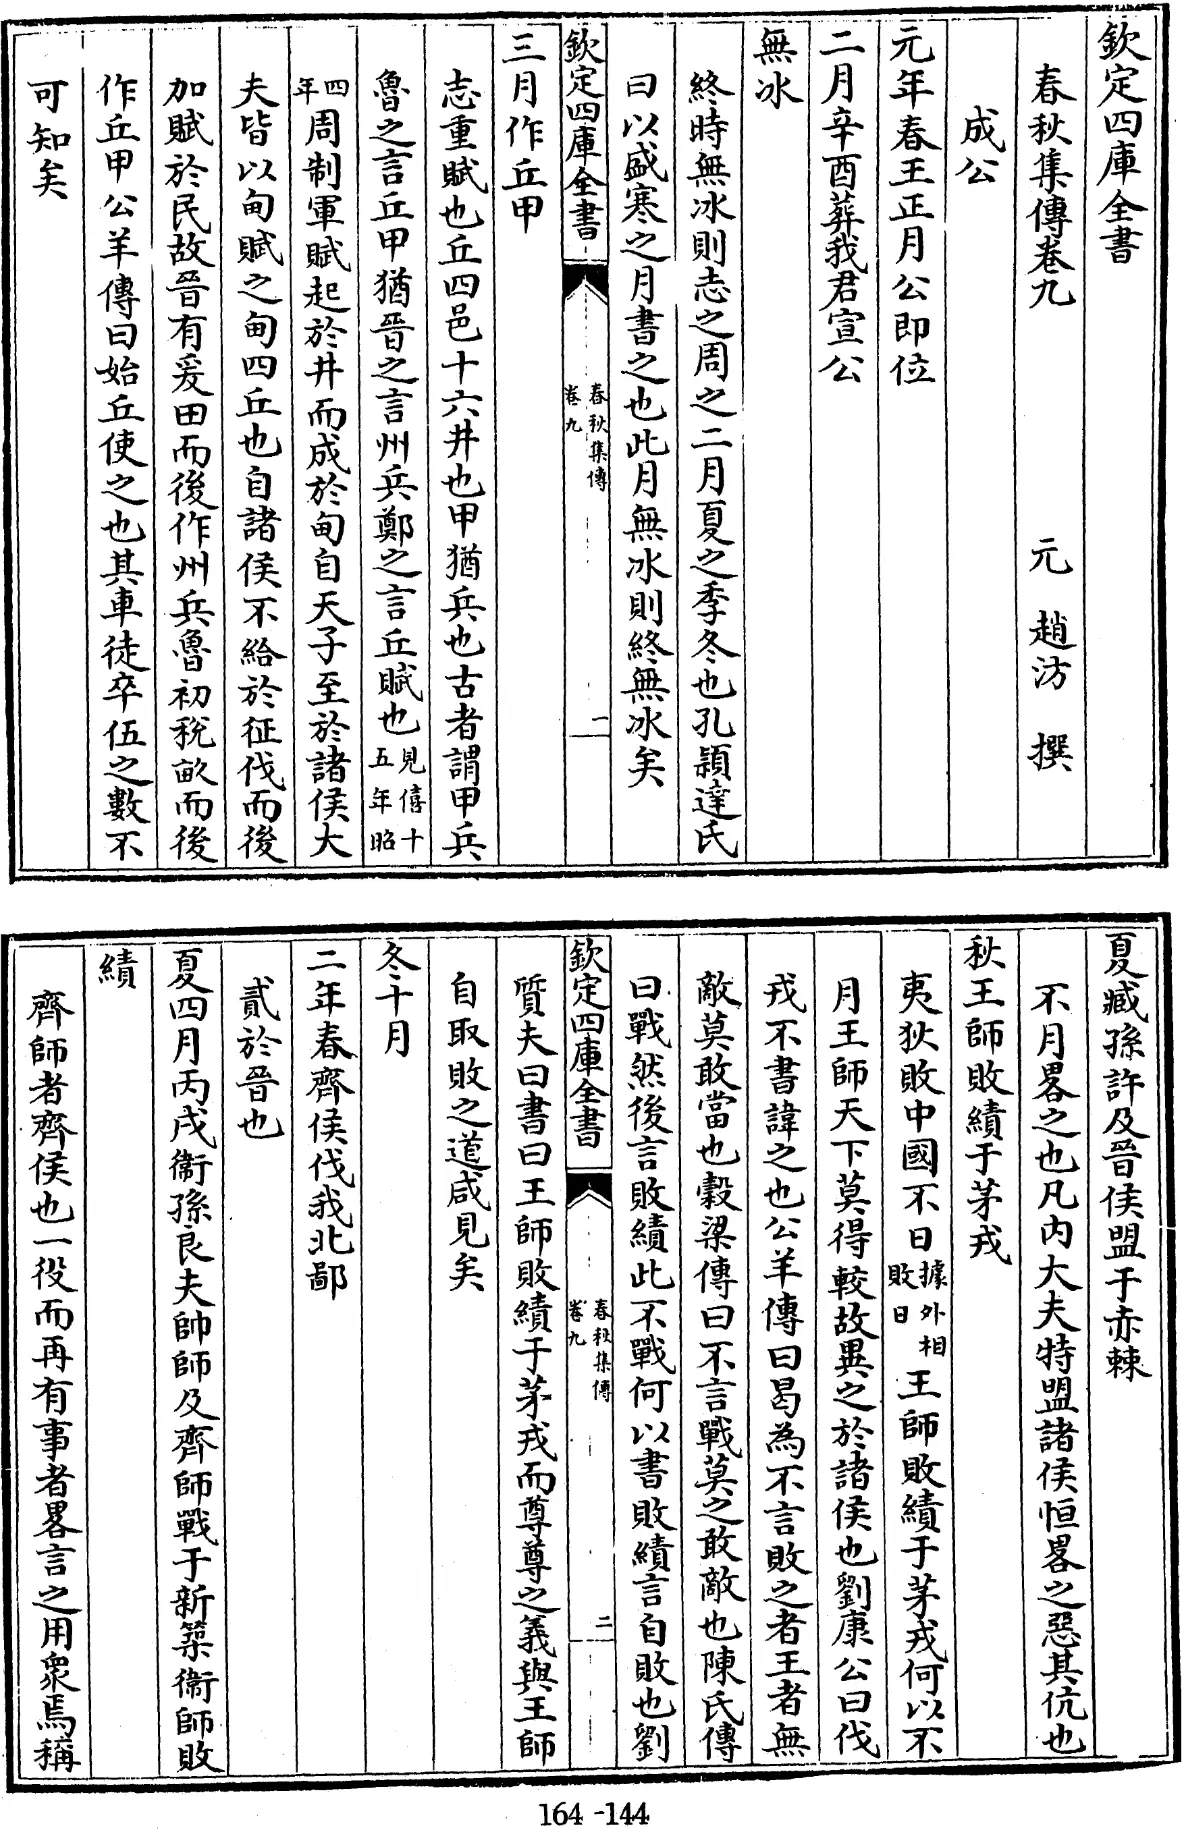 欽定四庫全書
春秋集傳卷九　元　趙汸　撰
成公
元年春王正月公即位
二月辛酉葬我君宣公
無冰
終時無冰則志之周之二月夏之季冬也孔穎達氏
曰以盛寒之月書之也此月無冰則終無冰矣
欽定四庫全書　春秋集傳　卷九　一
三月作丘甲
志重賦也丘四邑十六井也甲猶兵也古者謂甲兵
魯之言丘甲猶晉之言州兵鄭之言丘賦也見僖十五年昭
四年周制軍賦起於井而成於甸自天子至於諸侯大
夫皆以甸賦之甸四丘也自諸侯不給於征伐而後
加賦於民故晉有爰田而後作州兵魯初稅畝而後
作丘甲公羊傳曰始丘使之也其車徒卒伍之數不
可知矣
夏臧孫許及晉侯盟于赤棘
不月畧之也凡內大夫特盟諸侯恒畧之惡其伉也
秋王師敗績于茅戎
夷狄敗中國不日據外相敗日王師敗績于茅戎何以不
月王師天下莫得較故異之於諸侯也劉康公曰伐
戎不書諱之也公羊傳曰曷為不言敗之者王者無
敵莫敢當也穀梁傳曰不言戰莫之敢敵也陳氏傳
曰戰然後言敗績此不戰何以書敗績言自敗也劉
欽定四庫全書　春秋集傳　卷九　二
質夫曰書曰王師敗績于茅戎而尊尊之義與王師
自取敗之道咸見矣
冬十月
二年春齊侯伐我北鄙
貳於晉也
夏四月丙戌衞孫良夫帥師及齊師戰于新築衞師敗
績
齊師者齊侯也一役而再有事者畧言之用衆焉稱
164-144